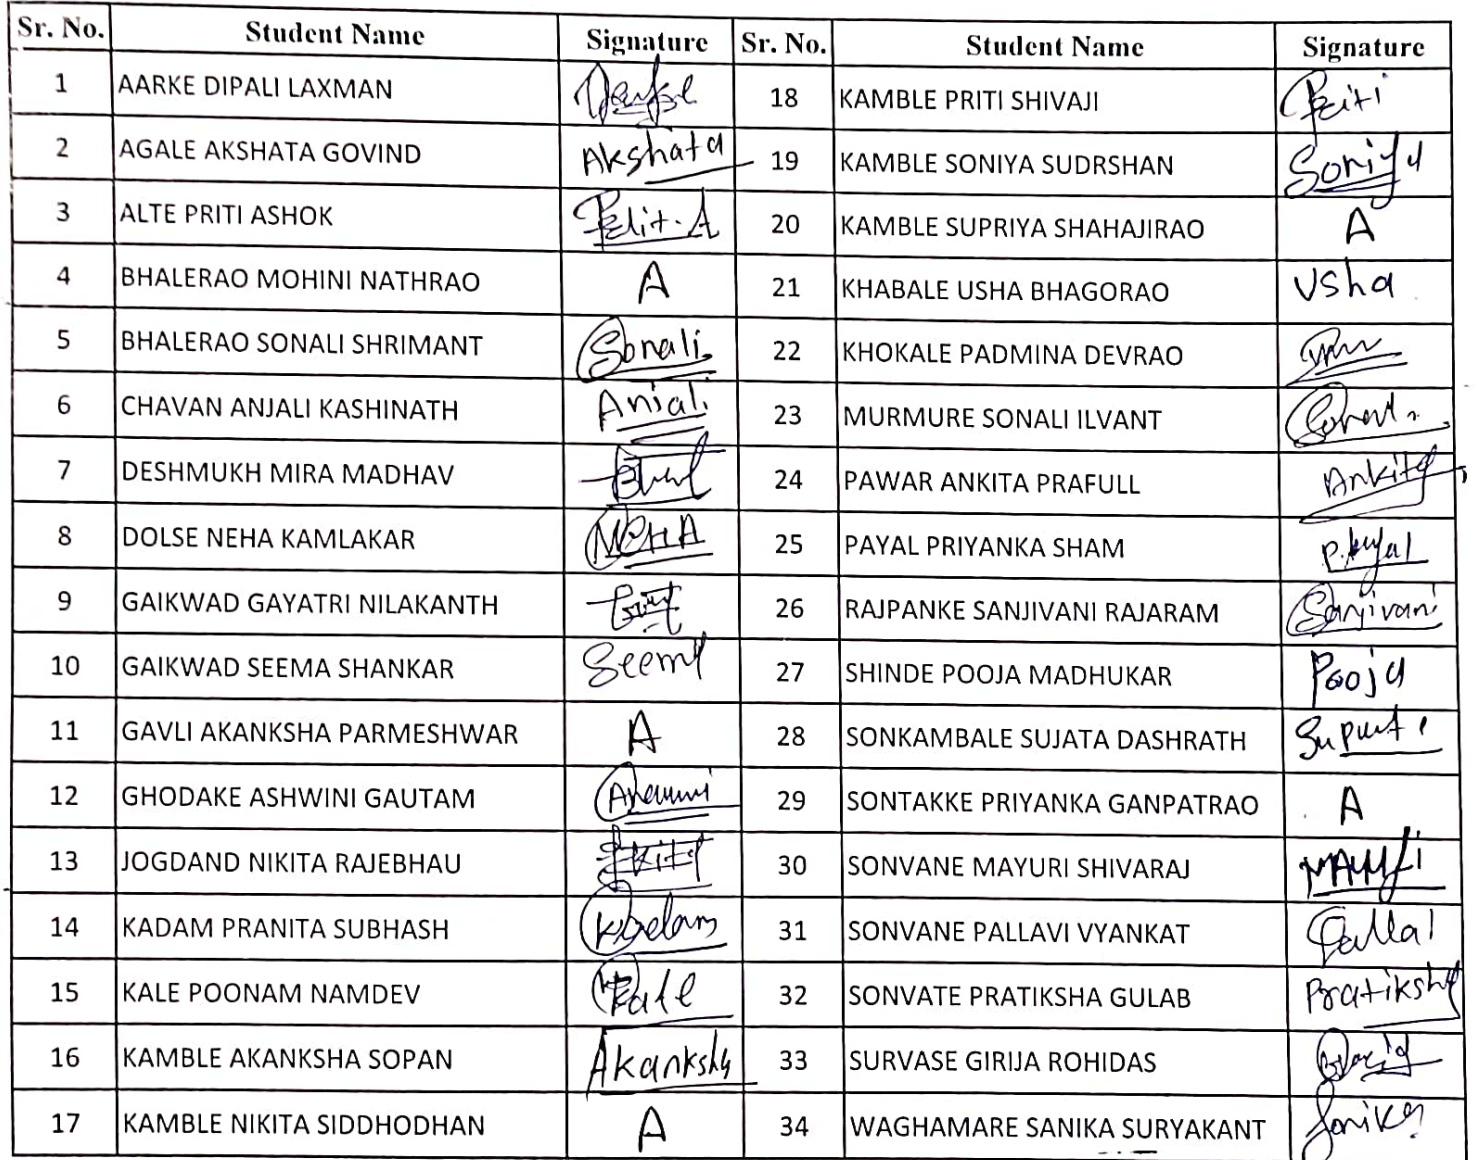 Sr. No. Student Name Signature Sr. No. Student Name Signature
1 AARKE DIPALI LAXMAN 18 KAMBLE PRITI SHIVAJI Priti
2 AGALE AKSHATA GOVIND Akshata 19 KAMBLE SONIYA SUDRSHAN Soniya
3 ALTE PRITI ASHOK 20 KAMBLE SUPRIYA SHAHAJIRAO A
4 BHALERAO MOHINI NATHRAO A 21 KHABALE USHA BHAGORAO Usha
5 BHALERAO SONALI SHRIMANT Sonali 22 KHOKALE PADMINA DEVRAO
6 CHAVAN ANJALI KASHINATH Anjali 23 MURMURE SONALI ILVANT
7 DESHMUKH MIRA MADHAV 24 PAWAR ANKITA PRAFULL Ankita
8 DOLSE NEHA KAMLAKAR NeHA 25 PAYAL PRIYANKA SHAM P.Payal
9 GAIKWAD GAYATRI NILAKANTH 26 RAJPANKE SANJIVANI RAJARAM Sanjivani
10 GAIKWAD SEEMA SHANKAR Seema 27 SHINDE POOJA MADHUKAR Pooja
11 GAVLI AKANKSHA PARMESHWAR A 28 SONKAMBALE SUJATA DASHRATH
12 GHODAKE ASHWINI GAUTAM 29 SONTAKKE PRIYANKA GANPATRAO A
13 JOGDAND NIKITA RAJEBHAU 30 SONVANE MAYURI SHIVARAJ
14 KADAM PRANITA SUBHASH 31 SONVANE PALLAVI VYANKAT
15 KALE POONAM NAMDEV Kale 32 SONVATE PRATIKSHA GULAB Pratiksha
16 KAMBLE AKANKSHA SOPAN Akanksha 33 SURVASE GIRIJA ROHIDAS
17 KAMBLE NIKITA SIDDHODHAN A 34 WAGHAMARE SANIKA SURYAKANT